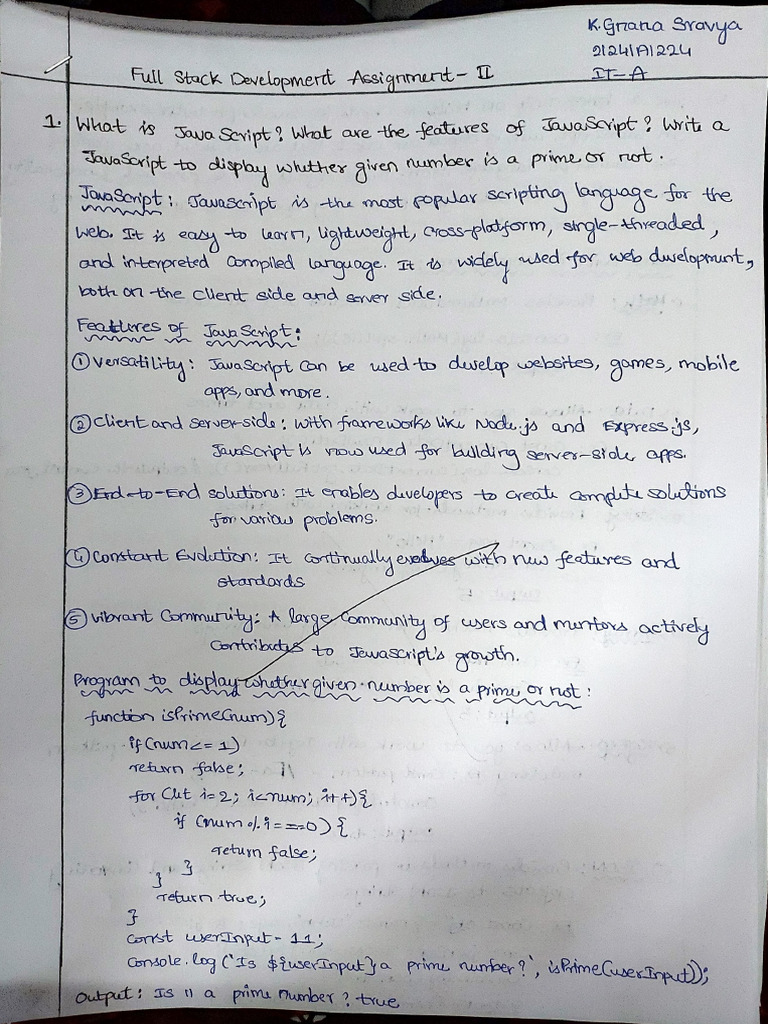 K. Gnana Sravya
21241A1224
IT-A
Full Stack Development Assignment - II
1. What is JavaScript? What are the features of JavaScript? Write a
JavaScript to display whether given number is a prime or not.
JavaScript: JavaScript is the most popular scripting language for the
web. It is easy to learn, lightweight, cross-platform, single-threaded,
and interpreted compiled language. It is widely used for web development,
both on the client side and server side.
Features of JavaScript:
① Versatility: JavaScript can be used to develop websites, games, mobile
apps, and more.
② Client and server-side: with frameworks like Node.js and Express.js,
JavaScript is now used for building server-side apps.
③ End-to-End solutions: It enables developers to create complete solutions
for various problems.
④ Constant Evolution: It continually evolves with new features and
standards
⑤ vibrant Community: A large community of users and mentors actively
contributes to JewaScript's growth.
Program to display whether given number is a prime or not:
function isPrime(num){
if(num<=1)
return false;
for(let i=2; i<num; i++){
if (num%i===0){
return false;
}
}
return true;
}
const userInput = 11;
Console.log('Is ${userInput} a prime number?', isPrime(userInput));
Output: Is 11 a prime number? true